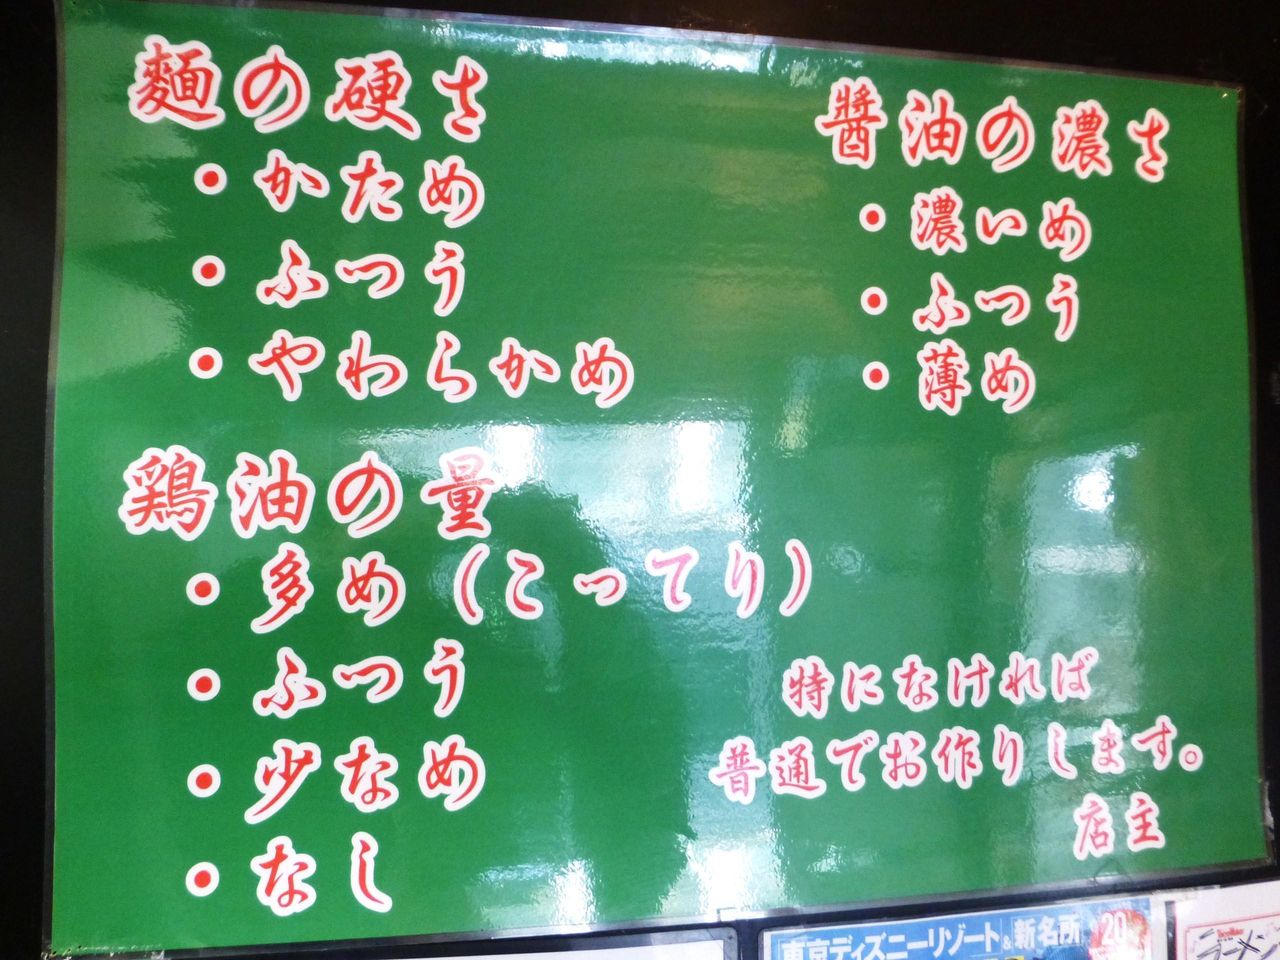 麺の硬さ
・かため
・ふつう
・やわらかめ
醤油の濃さ
・濃いめ
・ふつう
・薄め
鶏油の量
・多め(こってり)
・ふつう
・少なめ
・なし
特になければ
普通でお作りします。
店主
東京ディズニーリゾート&新名所
20
ラーメン